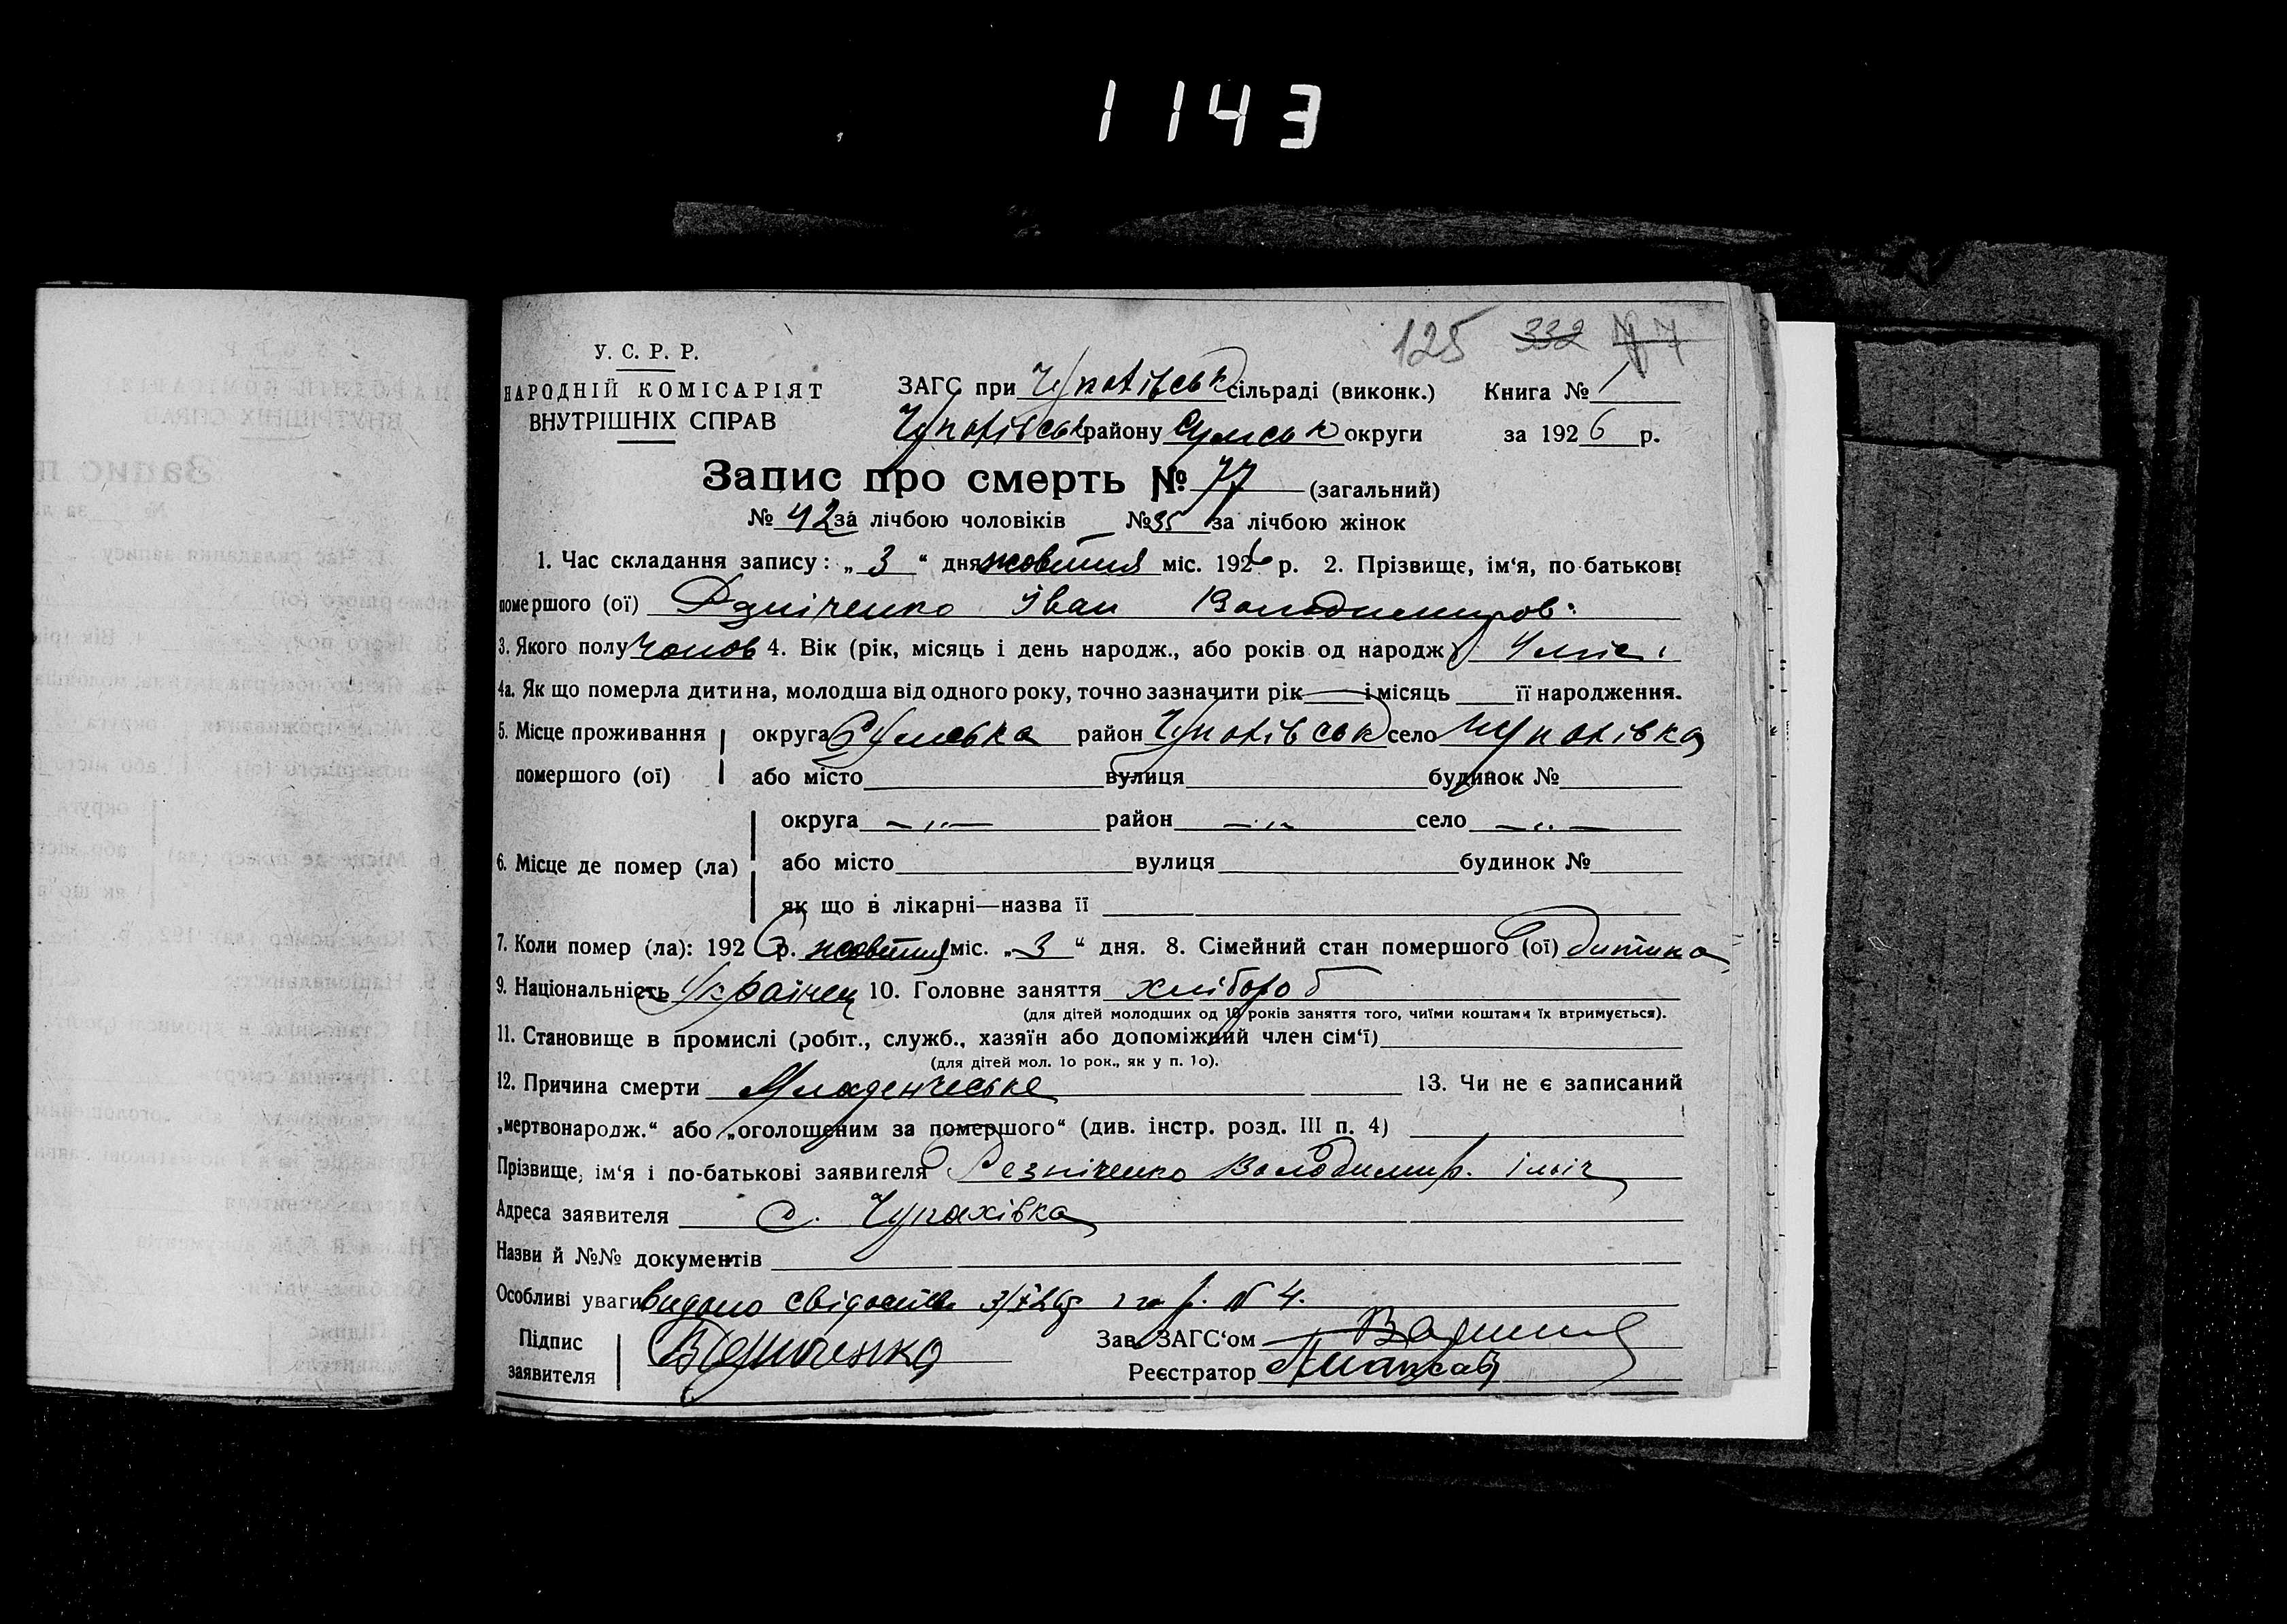 1143
125 332 №7
У. С. Р. Р.
НАРОДНІЙ КОМІСАРІЯТ
ВНУТРІШНІХ СПРАВ
ЗАГС при Чупахівськ сільраді (виконк.) Книга № 1
Чупахівськ району Сумськ округи за 1926 р.
Запис про смерть № 77 (загальний)
№ 42 за лічбою чоловіків №35 за лічбою жінок
1. Час складання запису: „ 3 “ дня жовтня міс. 1926 р. 2. Прізвище, ім‘я, по-батькові
помершого (ої) Іван Володимиров.
3. Якого полу чолов 4. Вік (рік, місяць і день народж., або років од народж) 4 міс.
4а. Як що померла дитина, молодша від одного року, точно зазначити рік — і місяць її народження.
5. Місце проживання округа Сумська район Чупахівськ село Чупахівка
помершого (ої) або місто вулиця будинок №
округа —„— район —„— село —„—
6. Місце де помер (ла) або місто вулиця будинок №
як що в лікарні—назва її
7. Коли помер (ла): 1926 р. жовтня міс. „ 3 “ дня. 8. Сімейний стан помершого (ої) дитина
9. Національність Українец 10. Головне заняття хлібороб
(для дітей молодших од 10 років заняття того, чиїми коштами їх втримується).
11. Становище в промислі (робіт., служб., хазяїн або допоміжний член сім‘ї)
(для дітей мол. 1о рок., як у п. 1о).
12. Причина смерти Младенческе 13. Чи не є записаний
„мертвонародж.“ або „оголошеним за помершого“ (див. інстр. розд. III п. 4)
Прізвище, ім‘я і по-батькові заявителя Резніченко Володимир. Ілліч
Адреса заявителя с. Чупахівка
Назви й №№ документів
Особливі уваги видано свідоцтво № 4.
Підпис Зав. ЗАГС‘ом
заявителя Реєстратор